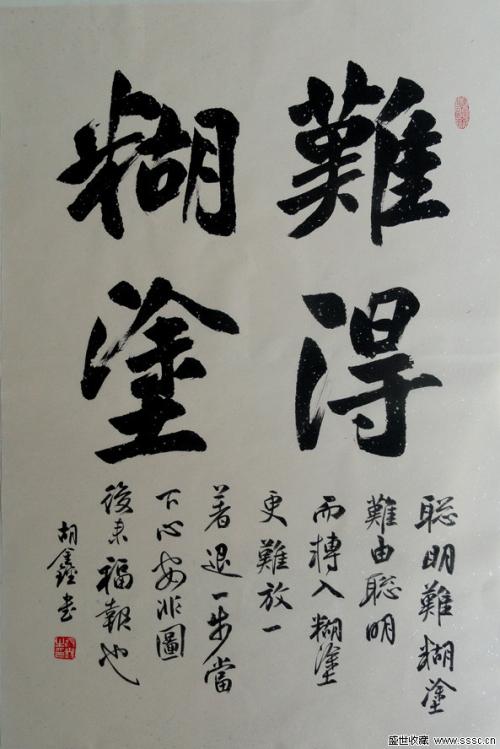 難得
糊塗
聰明難糊塗
難由聰明
而轉入糊塗
更難放一
著退一步當
下心安非圖
後來福報也
胡鑫書
盛世收藏 www.sssc.cn